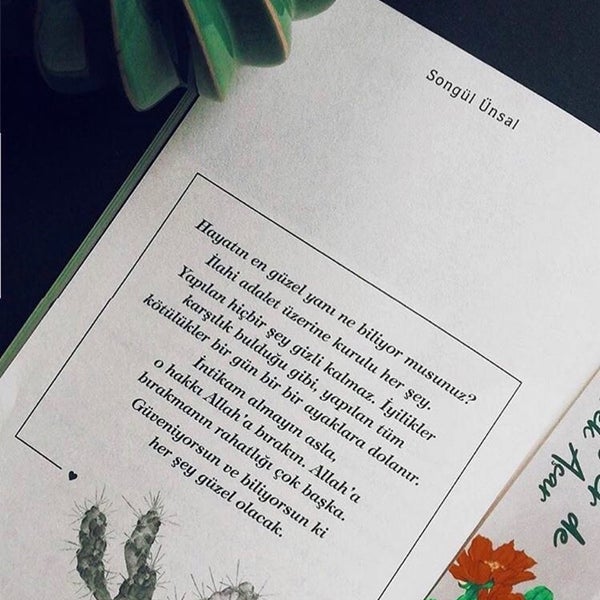 Songül Ünsal
Hayatın en güzel yanı ne biliyor musunuz?
İlahi adalet üzerine kurulu her şey.
Yapılan hiçbir şey gizli kalmaz. İyilikler
karşılık bulduğu gibi, yapılan tüm
kötülükler bir gün bir bir ayaklara dolanır.
İntikam almayın asla,
o hakkı Allah'a bırakın. Allah'a
bırakmanın rahatlığı çok başka.
Güveniyorsun ve biliyorsun ki
her şey güzel olacak.
de
Açar